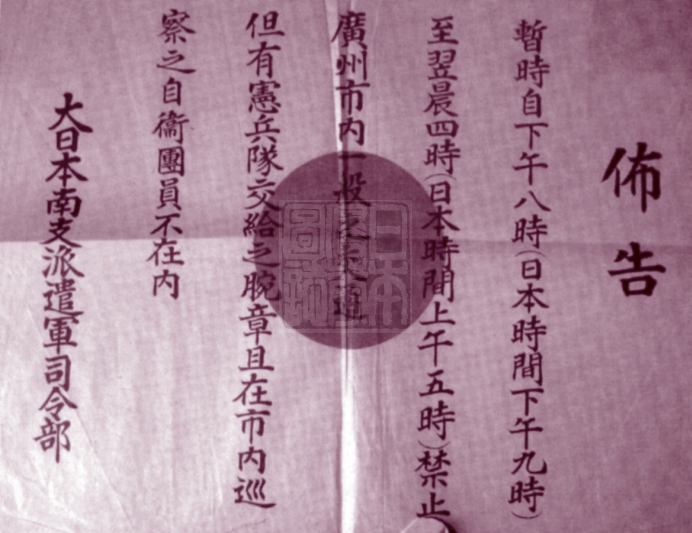 佈告
暫時自下午八時(日本時間下午九時)
至翌晨四時(日本時間上午五時)禁止
廣州市内一般之交通
但有憲兵隊交給之腕章且在市内巡
察之自衞團員不在内
大日本南支派遣軍司令部